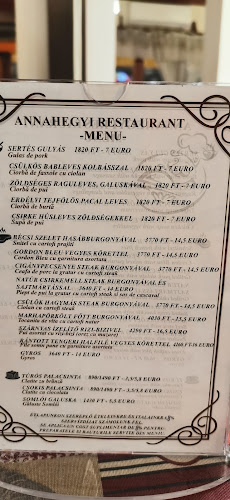 ANNAHEGYI RESTAURANT
-MENU-
SERTÉS GULYÁS 1820 FT - 7 EURO
Gulas de pork
CSÜLKÖS BABLEVES KOLBÁSSZAL 1820 FT - 7 EURO
Ciorbă de fasole cu ciolan
ZÖLDSÉGES RAGULEVES, GALUSKÁVAL 1820 FT - 7 EURO
Ciorbă de pui
ERDÉLYI TEJFÖLÖS PACAL LEVES 1820 FT - 7 EURO
Ciorbă de burtă
CSIRKE HÚSLEVES ZÖLDSÉGEKKEL 1820 FT - 7 EURO
Supă de pui
BÉCSI SZELET HASÁBBURGONYÁVAL 3770 FT - 14,5 EURO
Snitel cu cartofi prajiti
CORDON BLEU VEGYES KÖRETTEL 3770 FT - 14,5 EURO
Cordon Bleu cu garnitura asortata
CIGÁNYPECSENYE STEAK BURGONYÁVAL 3770 FT - 14,5 EURO
Ceafa de porc la gratar cu cartofi
NATÚR CSIRKEMELL STEAK BURGONYÁVAL ÉS
SAJTMÁRTÁSSAL 3640 FT - 14 EURO
Piept de pui la gratar cu cartofi steak si sos de cascaval
CSÜLÖK HAGYMÁS STEAK BURGONYÁVAL 3770 FT - 14,5 EURO
Ciolan cu cartofi steak
MARHAPÖRKÖLT FŐTT BURGONYÁVAL 4030 FT - 15,5 EURO
Tocanita de vita cu cartofi
SZÁRNYAS ÍZELÍTŐ RIZI-BIZIVEL 4290 FT - 16,5 EURO
RÁNTOTT TENGERI HALFILÉ VEGYES KÖRETTEL 4160 FT - 16 EURO
GYROS 3640 FT - 14 EURO
Gyros
TÚRÓS PALACSINTA
Clatite cu brânză
CSOKIS PALACSINTA
Clatite cu ciocolata
SOMLÓI GALUSKA
Găluste Somlói